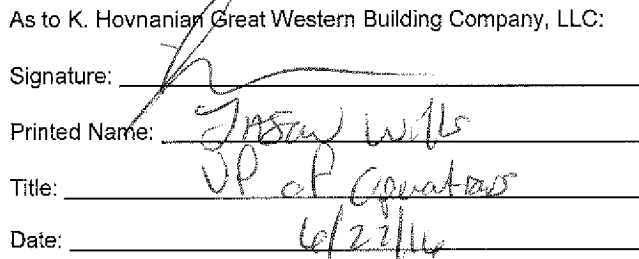 As to K. Hovnanian Great Western Building Company, LLC:
Signature:
Printed Name: Jason Wills
Title: VP of Operations
Date: 6/22/16